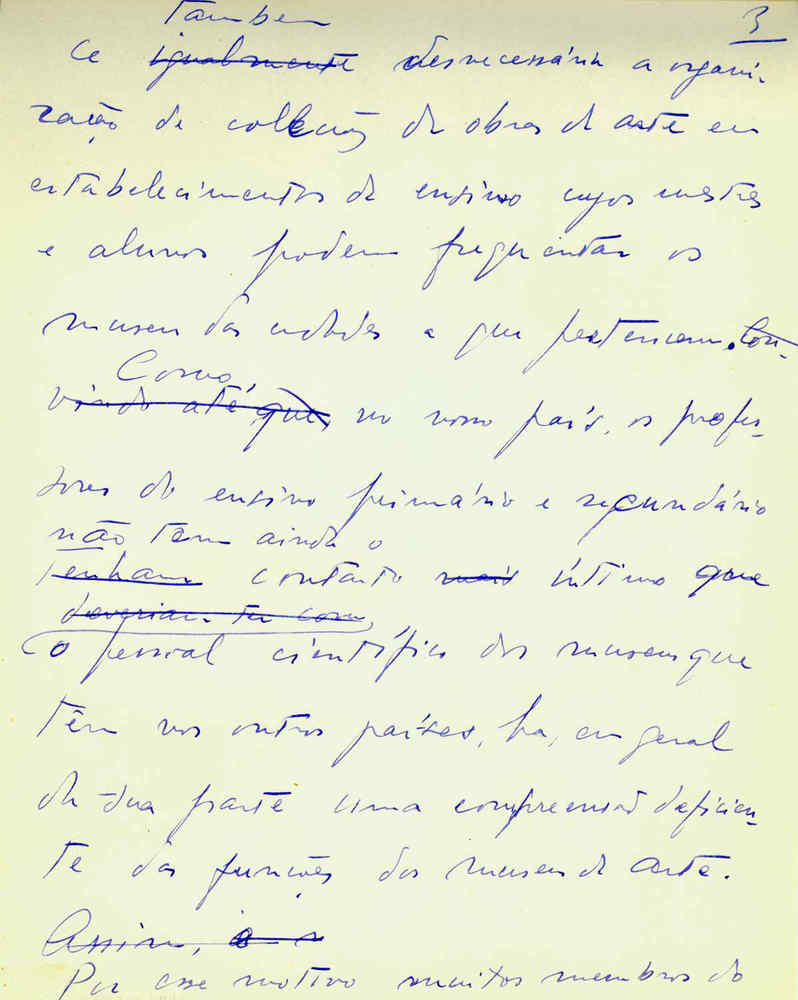 Tambem
3
é igualmente desnecessária a organi-
zação de collecções de obras de arte em
estabelecimentos de ensino cujos mestres
e alunos podem frequentar os
museus das cidades a que pertencem. Con-
Como,
vindo até, que, no nosso país, os profes-
sores do ensino primário e secundário
não têm ainda o
tenham contacto mais intimo que
deveriam ter com,
o pessoal científico dos museus que
têm nos outros países, ha, em geral
da sua parte uma compreensão deficien-
te das funções dos museus de arte.
Assim, é
Por esse motivo muitos membros do